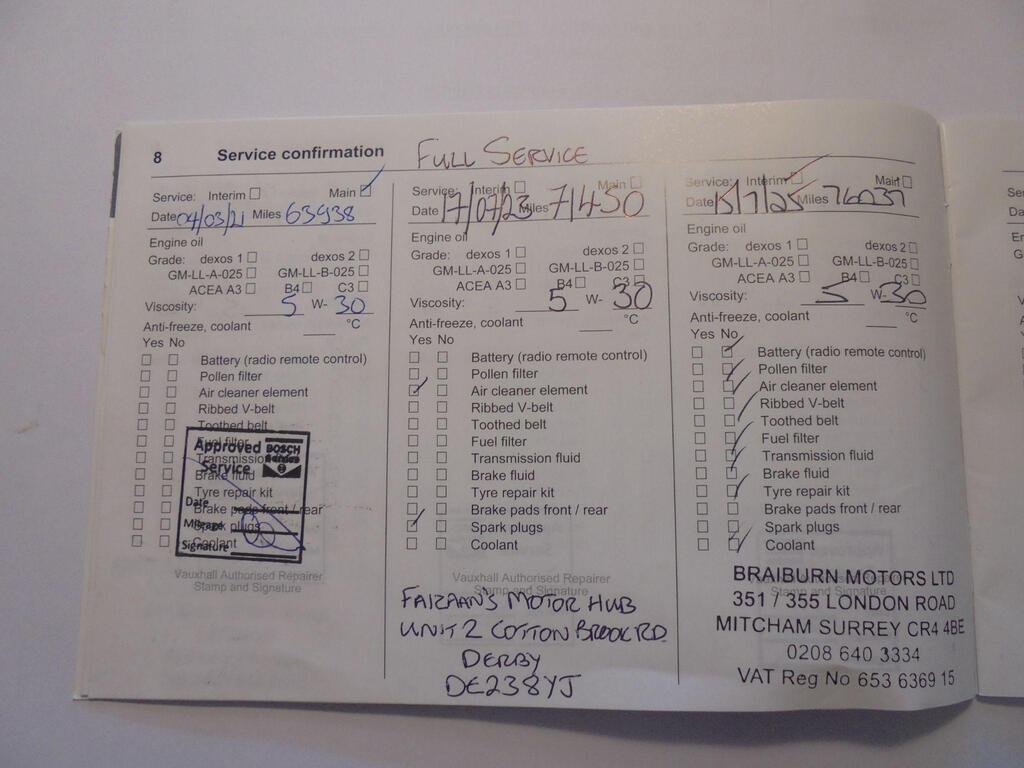 8 Service confirmation FULL SERVICE
Service: Interim Main
Date 04/03/21 Miles 63938
Engine oil
Grade: dexos 1 dexos 2
GM-LL-A-025 GM-LL-B-025
ACEA A3 B4 C3
Viscosity: 5 W- 30
Anti-freeze, coolant °C
Yes No
Battery (radio remote control)
Pollen filter
Air cleaner element
Ribbed V-belt
Toothed belt
Fuel filter
Transmission
Brake fluid
Tyre repair kit
Brake pads front / rear
Spark plugs
Coolant
Approved BOSCH
Service Service
Date
Mileage
Signature
Vauxhall Authorised Repairer
Stamp and Signature
Service: Interim Main
Date 17/07/23 Miles 71450
Engine oil
Grade: dexos 1 dexos 2
GM-LL-A-025 GM-LL-B-025
ACEA A3 B4 C3
Viscosity: 5 W- 30
Anti-freeze, coolant °C
Yes No
Battery (radio remote control)
Pollen filter
Air cleaner element
Ribbed V-belt
Toothed belt
Fuel filter
Transmission fluid
Brake fluid
Tyre repair kit
Brake pads front / rear
Spark plugs
Coolant
Vauxhall Authorised Repairer
Stamp and Signature
FAIZAAN'S MOTOR HUB
UNIT 2 COTTON BROOK RD.
DERBY
DE238YJ
Service: Interim Main
Date 15/7/25 Miles 76037
Engine oil
Grade: dexos 1 dexos 2
GM-LL-A-025 GM-LL-B-025
ACEA A3 B4 C3
Viscosity: 5 W-30
Anti-freeze, coolant °C
Yes No
Battery (radio remote control)
Pollen filter
Air cleaner element
Ribbed V-belt
Toothed belt
Fuel filter
Transmission fluid
Brake fluid
Tyre repair kit
Brake pads front / rear
Spark plugs
Coolant
Stamp and Signature
BRAIBURN MOTORS LTD
351 / 355 LONDON ROAD
MITCHAM SURREY CR4 4BE
0208 640 3334
VAT Reg No 653 6369 15